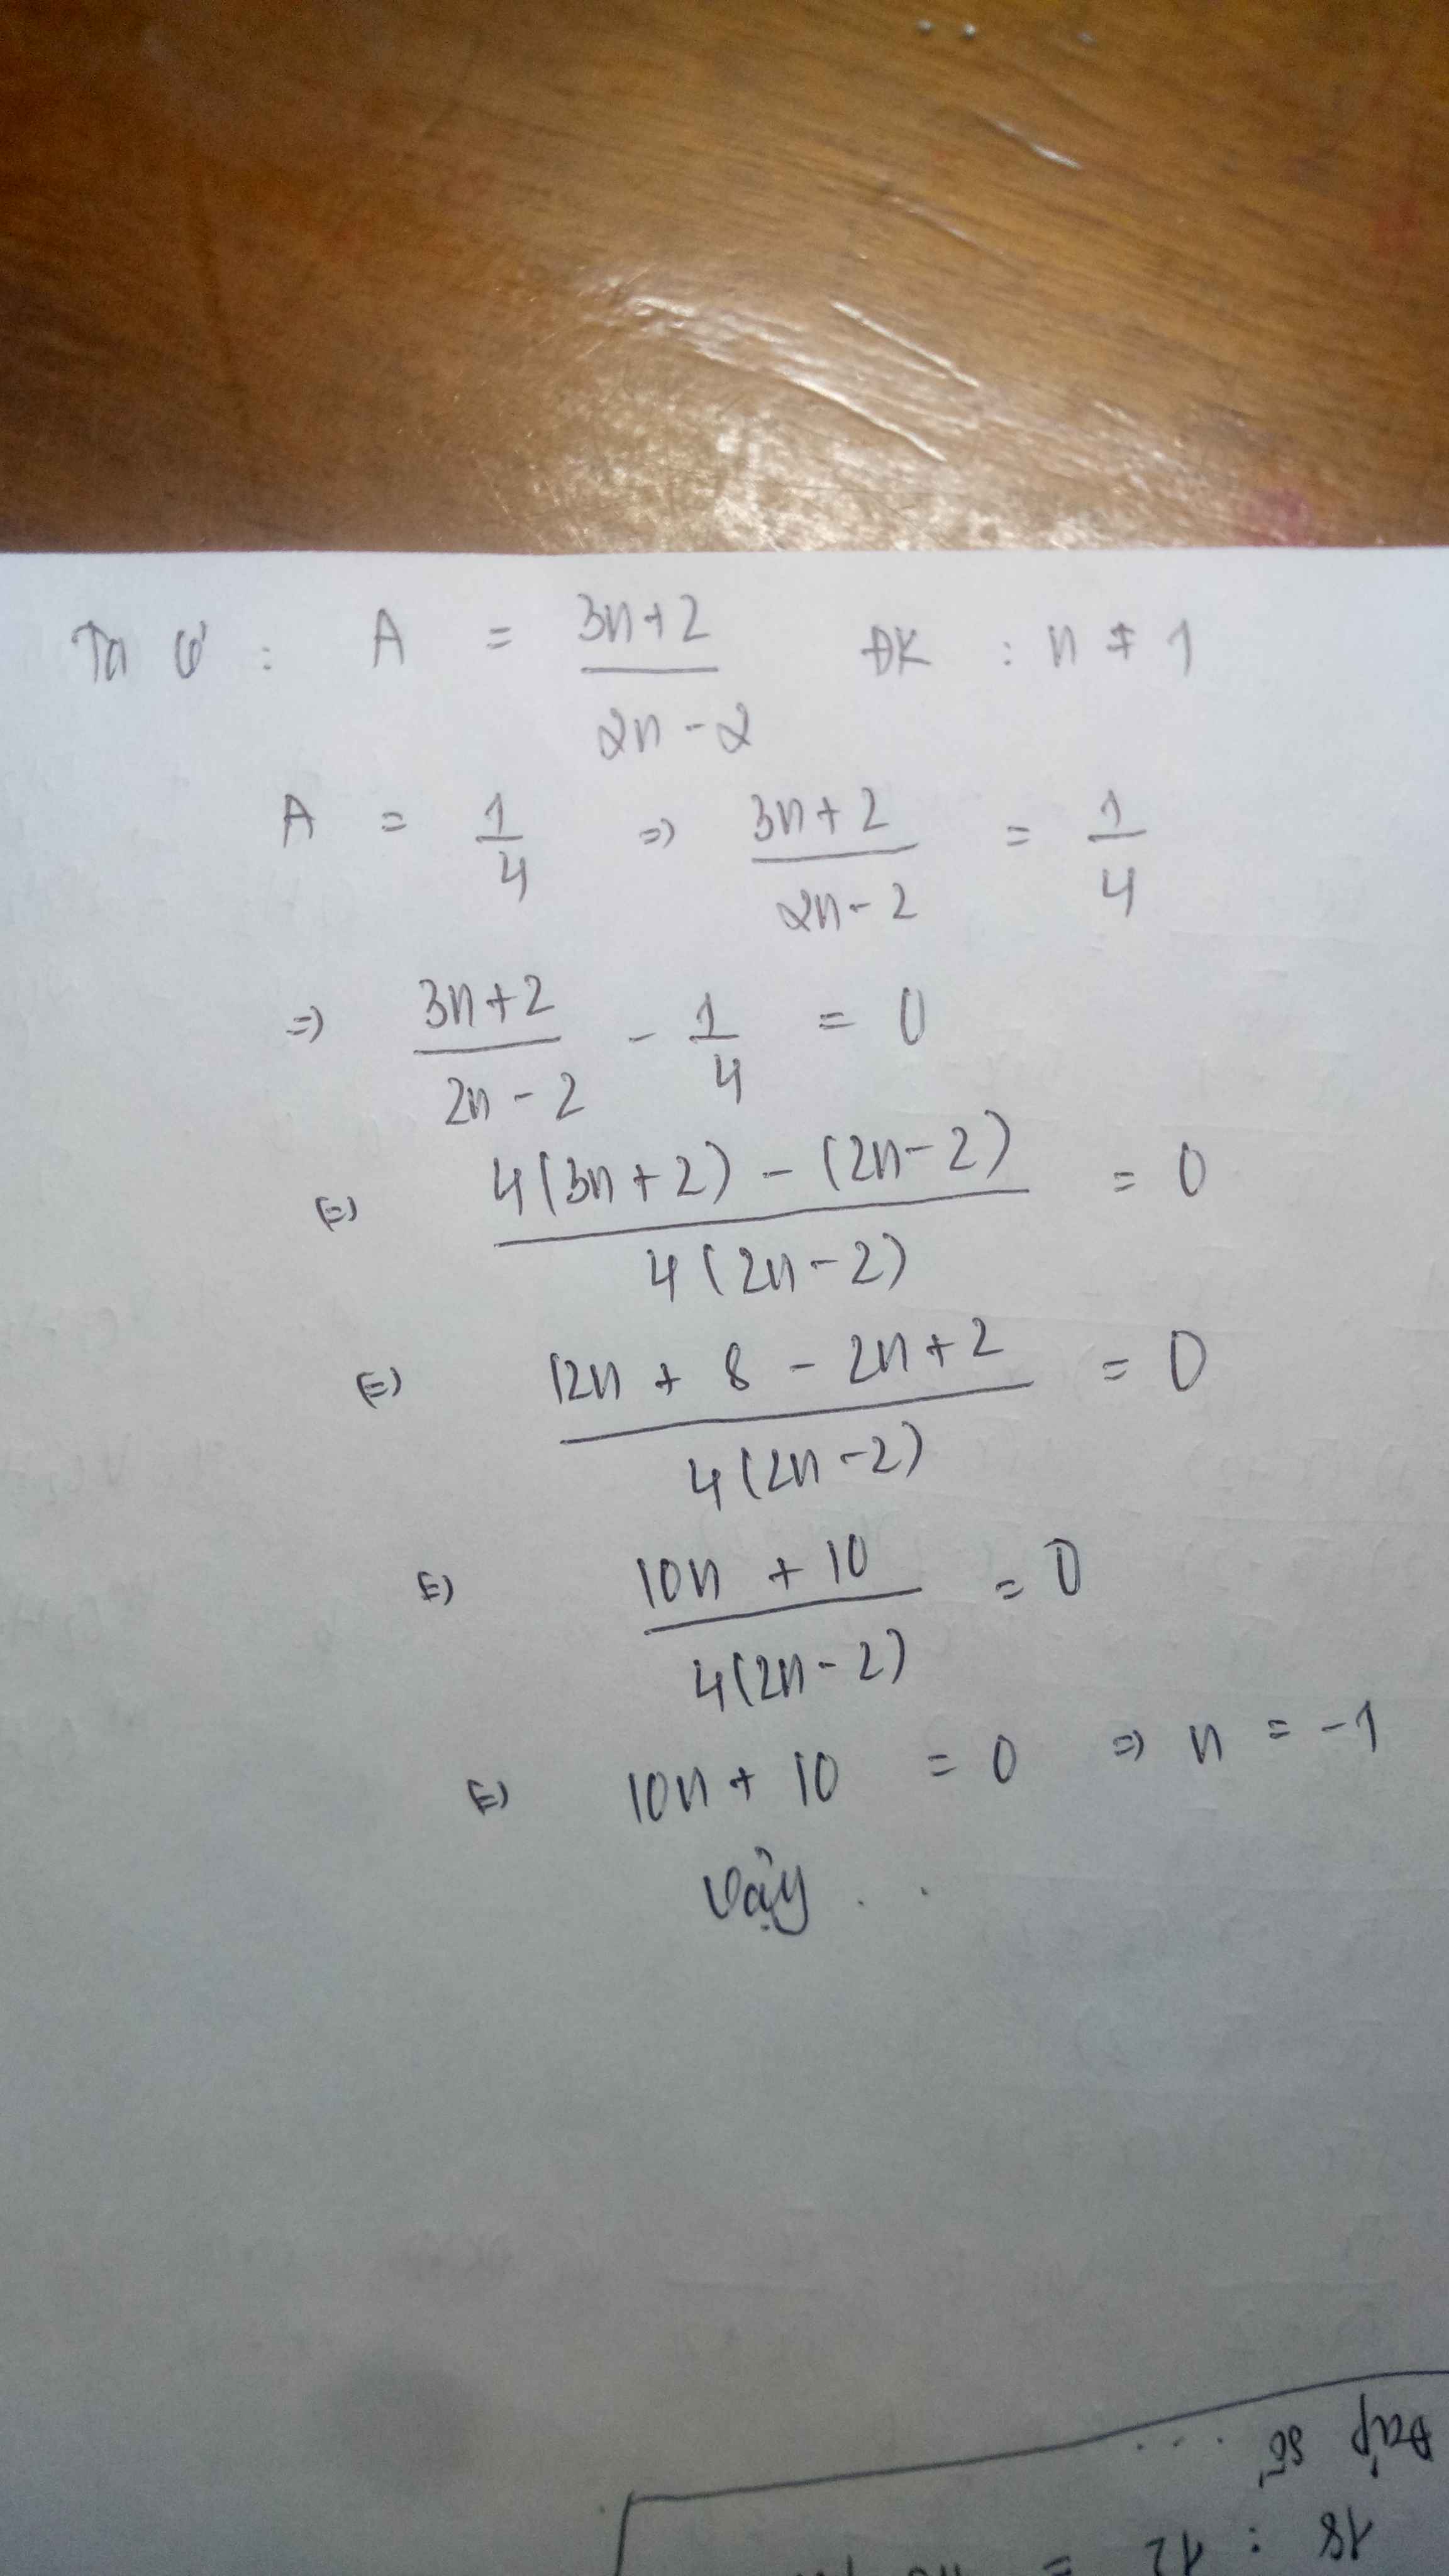 Ta có : A = (3n+2)/(2n-2) ĐK : n ≠ 1
A = 1/4 => (3n+2)/(2n-2) = 1/4
=> (3n+2)/(2n-2) - 1/4 = 0
(=) (4(3n+2) - (2n-2))/(4(2n-2)) = 0
(=) (12n + 8 - 2n+2)/(4(2n-2)) = 0
(=) (10n + 10)/(4(2n-2)) = 0
(=) 10n + 10 = 0 => n = -1
Vậy . .
Đáp số ...
18 : 12 =